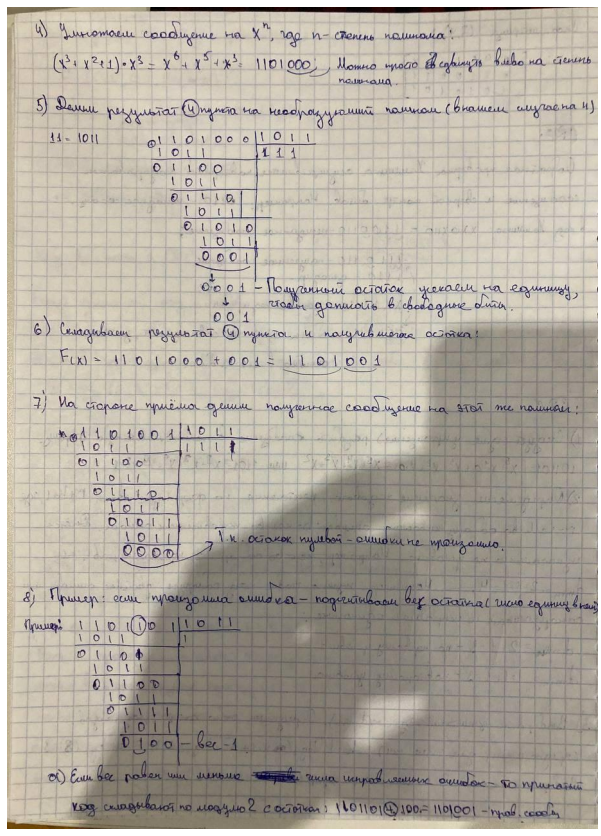 4) Умножаем сообщение на xⁿ, где n - степень полинома:
(x³ + x² + 1) · x³ = x⁶ + x⁵ + x³ = 1101000 Можно просто сдвинуть влево на степень
полинома.
5) Делим результат ④ пункта на необразующий полином (в нашем случае на 11)
11 = 1011
0 1 1 0 1 0 0 0 | 1 0 1 1
1 0 1 1 1 1 1
0 1 1 0 0
1 0 1 1
0 1 1 1 0
1 0 1 1
0 1 0 1 0
1 0 1 1
0 0 0 1
0 0 0 1 - Полученный остаток усекаем на единицу,
чтобы дописать в свободные биты.
0 0 1
6) Складываем результат ④ пункта и получившегося остатка:
F(x) = 1101000 + 001 = 1101001
7) На стороне приёма делим полученное сообщение на этот же полином:
0 1 1 0 1 0 0 1 | 1 0 1 1
1 0 1 1 1 1 1 1
0 1 1 0 0
1 0 1 1
0 1 1 1 0
1 0 1 1
0 1 0 1 1
1 0 1 1
0 0 0 0
Т.к. остаток нулевой - ошибки не произошло.
8) Пример: если произошла ошибка - подсчитываем вес остатка (число единиц в нём)
Пример: 1 1 0 1 1 0 1 | 1 0 1 1
1 0 1 1 1
0 1 1 0 1
1 0 1 1
0 1 1 0 0
1 0 1 1
0 1 1 1 1
1 0 1 1
0 1 0 0 - вес - 1
а) Если вес равен или меньше числа исправляемых ошибок - то принятый
код складывают по модулю 2 с остатком: 1101101 ⊕ 100 = 1101001 - прав. сообщ